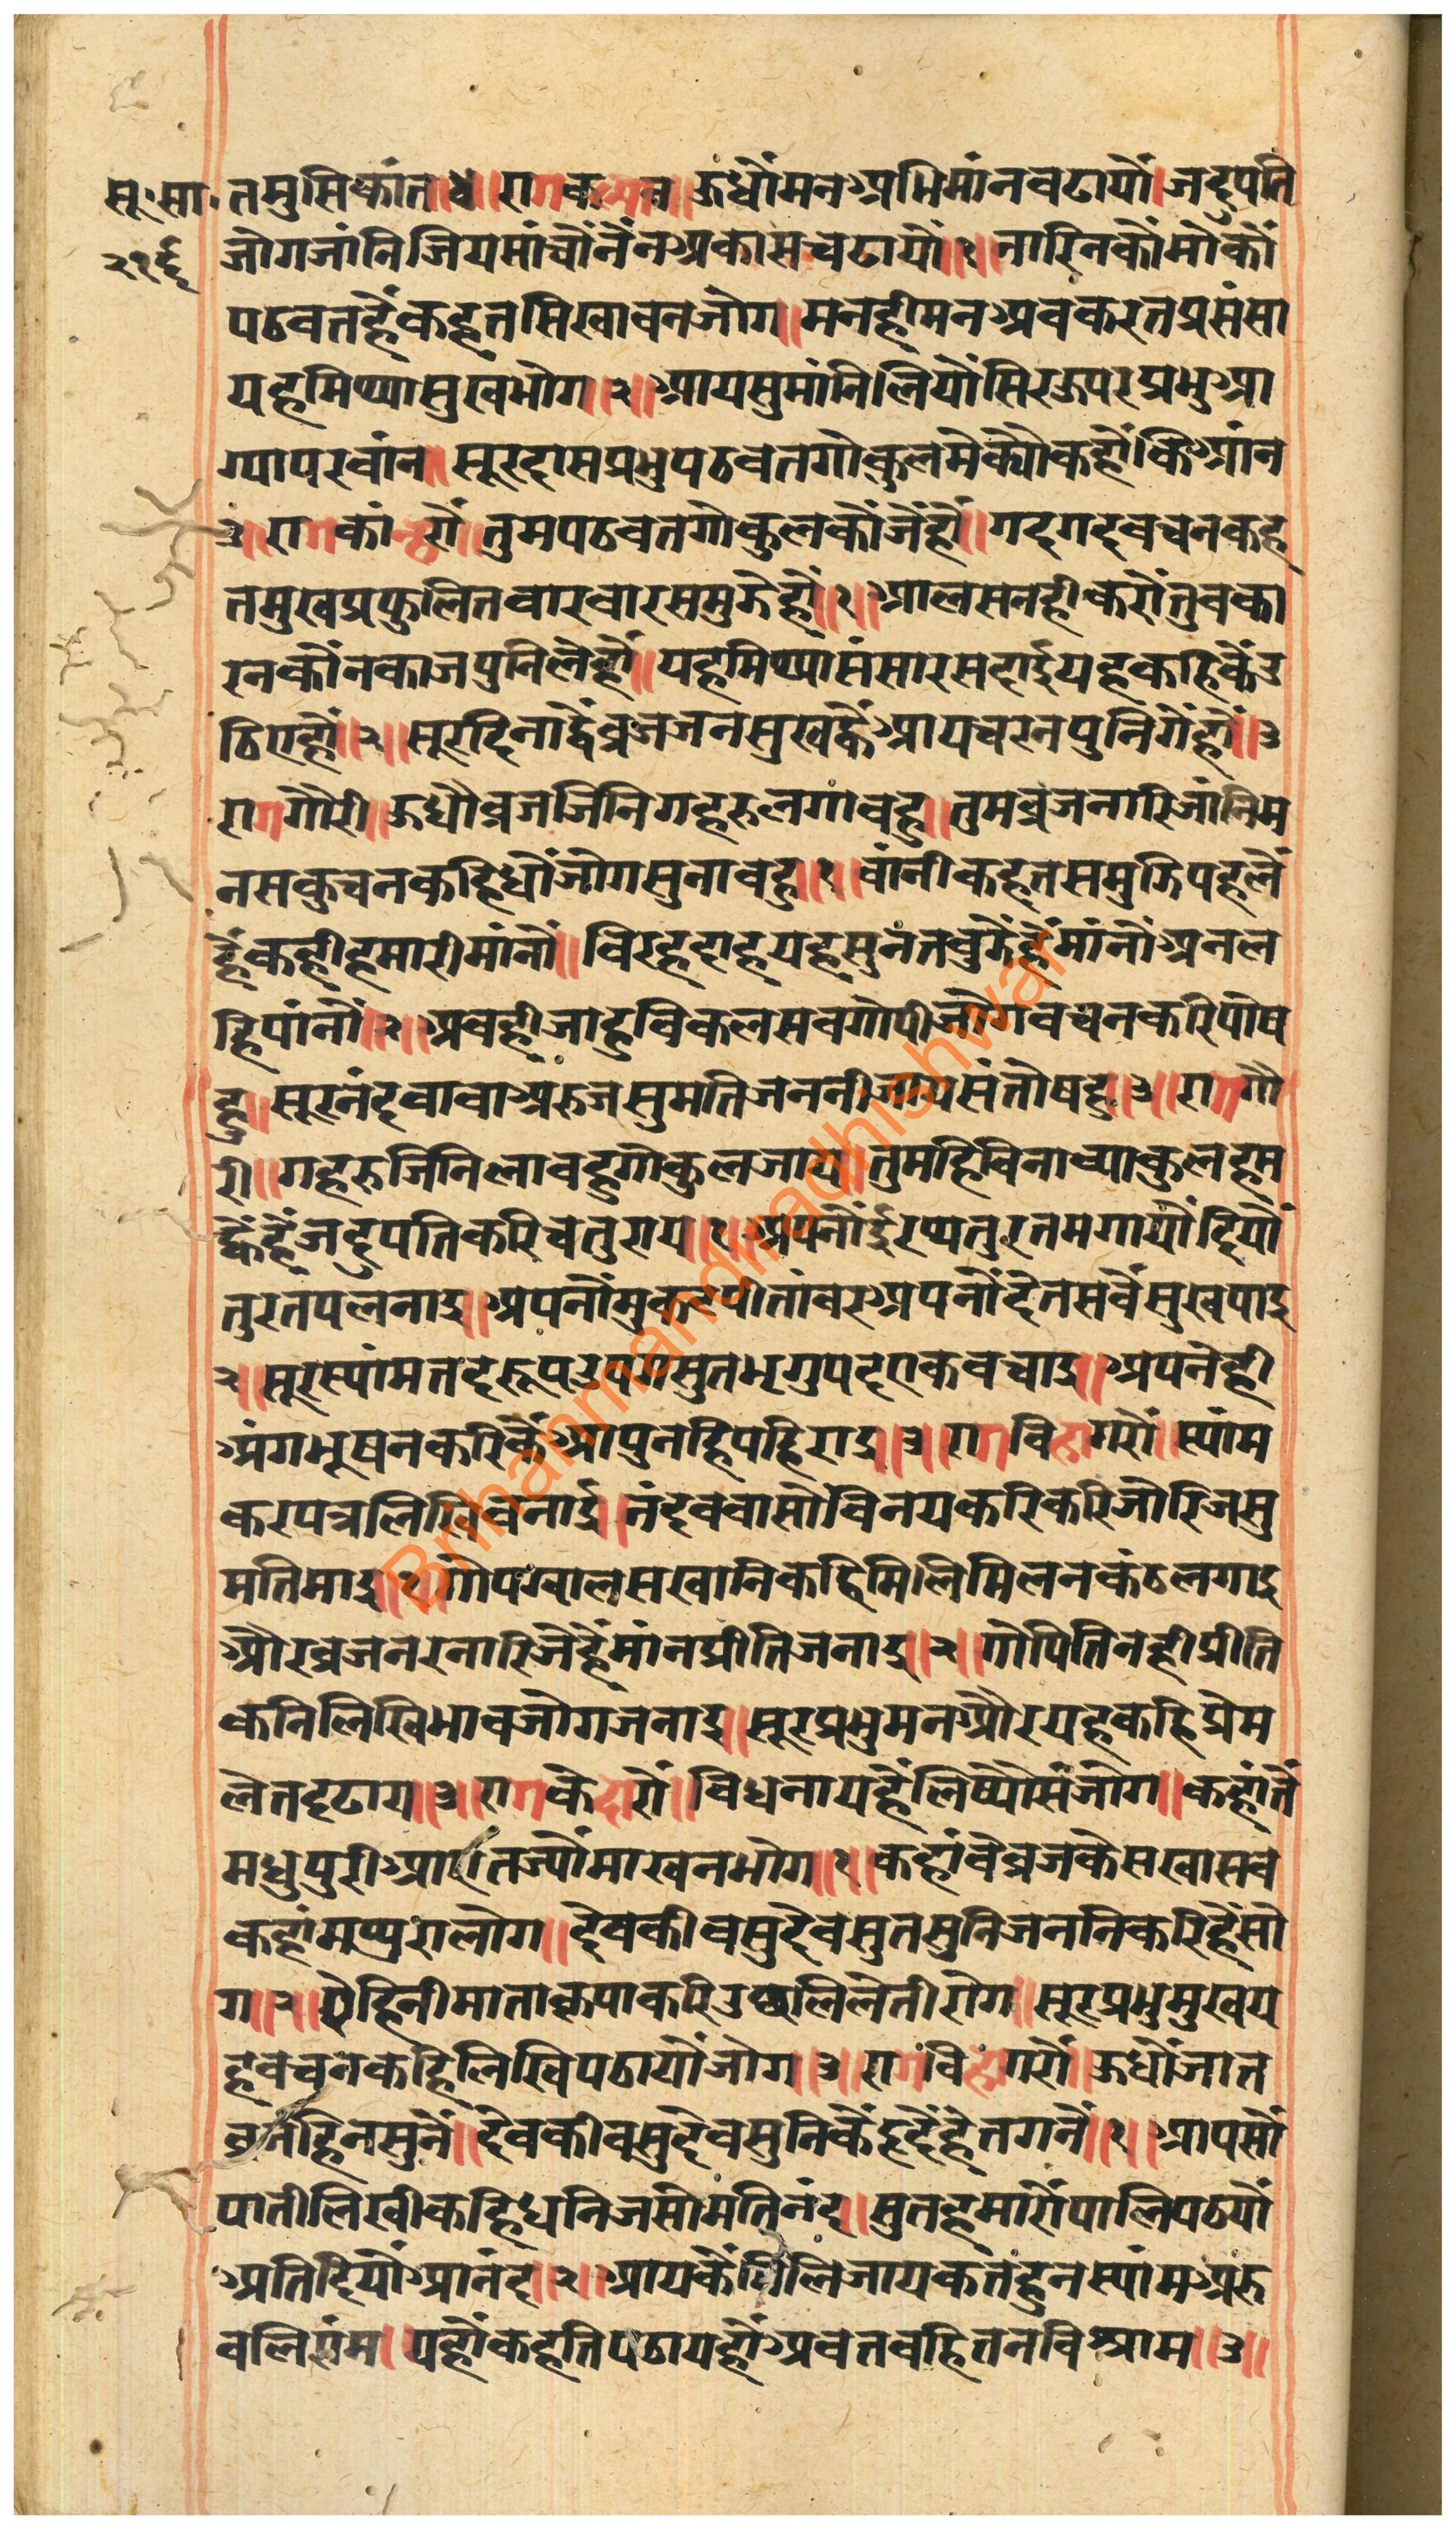 सू॰सा॰
२१६
तमुसिकांत॥४॥रागकल्यान॥ऊधौंमनअभिमांनवढायौं।जदुपति
जोगजांनिजियमांचौंनैंनअकासचढायौं॥१॥नारिनकौंमोंकौं
पठवतहैंकहतसिखावनजोग॥मनहीमनअवकरतप्रसंसा
यहमिथ्यासुखभोग॥२॥आयसुमांनिलियौंसिरऊपरप्रभुआ
ग्यापरवांन॥सूरदासप्रभुपठवतगोकुलमेक्यौकहौंकिआंन
३॥रागकांन्हरौं॥तुमपठवतगोकुलकौंजैंहौं॥गदगदवचनकह
तमुखप्रफुलितवारवारसमुझेहौं॥१॥आलसनहीकरौंतुवका
रनकौंनकाजपुनिलेहौं॥यहमिथ्यासंसारसदाईयहकहिकैंउ
ठिएहौं॥२॥सूरदिनाद्वैव्रजजनसुखदैंआयचरनपुनिगैंहौं॥३
रागगौरी॥ऊधौव्रजजिनिगहरुलगावहु॥तुमव्रजनारिजांनिम
नसकुचनकहिधौंजोगसुनावहु॥१॥वांनीकहतसमुझिपहलैं
हैंकहीहमारीमांनौं॥विरहदाहयहसुनतवुझैंहैंमांनौंअनल
हिपांनौं॥२॥अवहीजाहुविकलसवगोपीजोगवचनकरिपोष
हु॥सूरनंदवावाअरुजसुमतिजननीजायसंतोषहु॥३॥रागगौ
री॥गहरुजिनिलावहुगोकुलजाय॥तुमहिविनाव्याकुलहम
ह्वैंहैंजदुपतिकरिचतुराय॥१॥अपनौंईरथतुरतमगायौंदियौं
तुरतपलनाइ॥अपनौंमुकटपीतांवरअपनौंदेतसवैंसुखपाइ
२॥सूरस्यांमतदरूपउपगसुतभृगुपदएकवचाइ॥अपनेही
अंगभूषनकरिकैंआपुनहिपहिराइ॥३॥रागविहागरौं॥स्यांम
करपत्रलिखिवनाई।नंदववासोविनयकरिकरिजोरिजसु
मतिमाइ॥१॥गोपग्वालसखानिकहिमिलिमिलनकंठलगाइ
औरव्रजनरनारिजेहैंमांनप्रीतिजनाइ॥२॥गोपितिनहीप्रीति
कनिलिखिभावजोगजनाइ॥सूरप्रभुमनऔरयहकहिप्रेम
लेतदृढाय॥३॥रागकेदारौं॥विधनायहैंलिष्योसंजोग॥कहांतैं
मधुपुरीआएतज्यौंमाखनभोग॥१॥कहांवेव्रजकेसखासव
कहांमथुरालोग॥देवकीवसुदेवसुतसुनिजननिकरिहैंसो
ग॥२॥रोहिनीमाताकृपाकरिउछालिलेतीरोग॥सूरप्रभुमुखय
हवचनकहिलिखिपठायौंजोग॥३॥रागविहागरौं॥ऊधौंजात
व्रजहिनसुनैं॥देवकीवसुदेवसुनिकैंहृदैंहेतगनैं॥१॥आपसौं
पातीलिखीकहिधनिजसोमतिनंद॥सुतहमारौंपालिपठयौं
अतिदियौंआनंद॥२॥आयकैंमिलिजायकतहुनस्यांमअरु
वलिरांम॥पहौंकहतिपठायहौंअवतवहितनविश्राम॥३॥